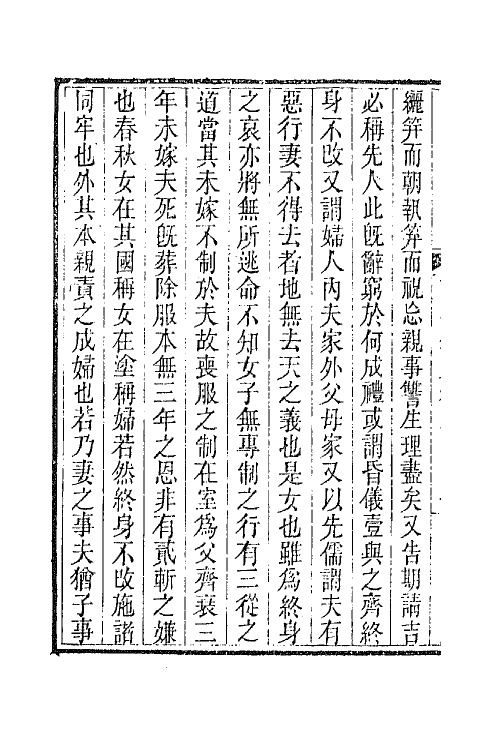 纚笄而朝執笲而祝忘親事讐生理盡矣又吿期請吉
必稱先人此旣辭窮於何成禮或謂昏儀壹與之齊終
身不改又謂婦人內夫家外父母家又以先儒謂夫有
惡行妻不得去者地無去天之義也是女也雖爲終身
之哀亦將無所逃命不知女子無專制之行有三從之
道當其未嫁不制於夫故喪服之制在室爲父齊衰三
年未嫁夫死旣葬除服本無三年之恩非有貳斬之嫌
也春秋女在其國稱女在塗稱婦若然終身不改施諸
同牢也外其本親責之成婦也若乃妻之事夫猶子事